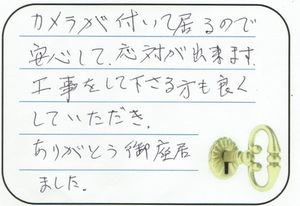 カメラが付いて居るので
安心して、応対が出来ます。
工事をして下さる方も良く
していただき、
ありがとう御座居
ました。